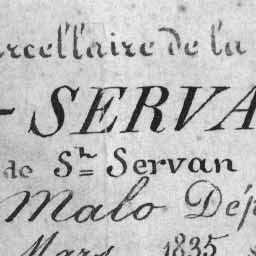 rcellaire de la
- SERVA
de Sn Servan
Malo Dép
Mars 1835